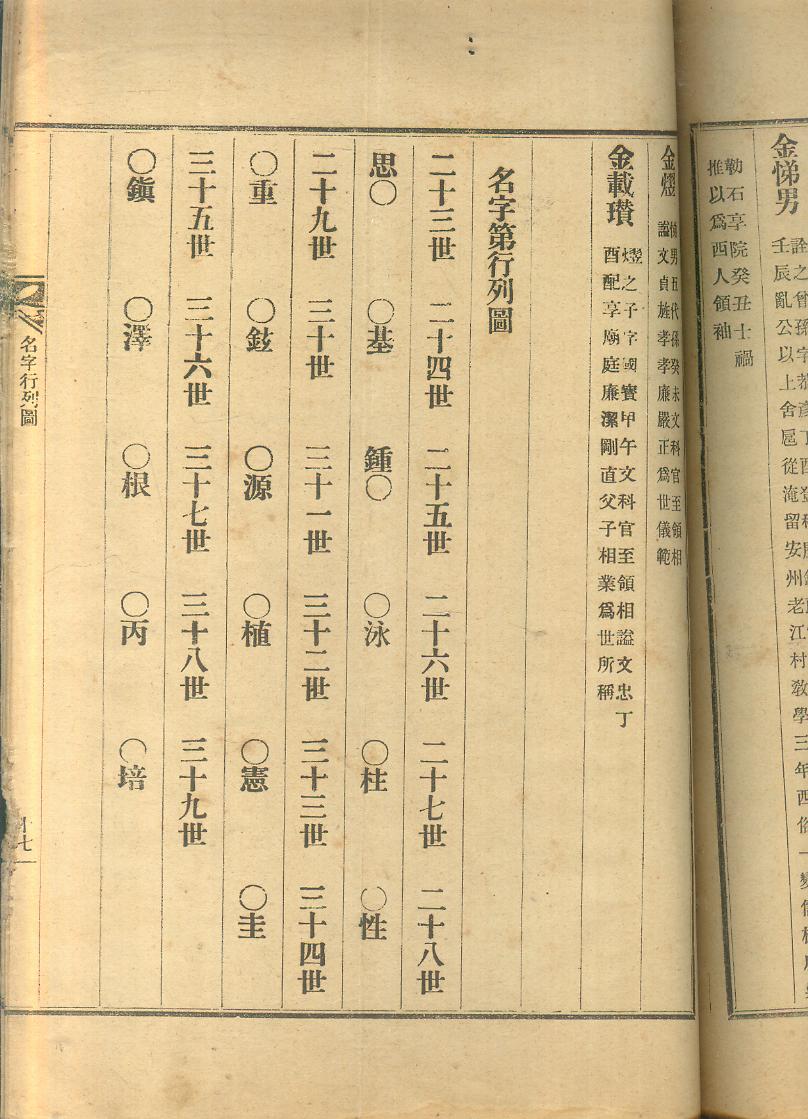 金悌男
詮之曾孫字
壬辰亂公以上舍扈從淹留安州老江村敎學三年西俗一變
勒石享院癸丑士禍
推以爲西人領袖
金熤
悌男五代孫癸未文科官至領相
謚文貞旌孝孝廉嚴正爲世儀範
金載瓚
熤之子字國寶甲午文科官至領相謚文忠丁
酉配享廟庭廉潔剛直父子相業爲世所稱
名字第行列圖
二十三世 二十四世 二十五世 二十六世 二十七世 二十八世
思〇 〇基 鍾〇 〇泳 〇柱 〇性
二十九世 三十世 三十一世 三十二世 三十三世 三十四世
〇重 〇鉉 〇源 〇植 〇憲 〇圭
三十五世 三十六世 三十七世 三十八世 三十九世
〇鎭 〇澤 〇根 〇丙 〇培
名字行列圖